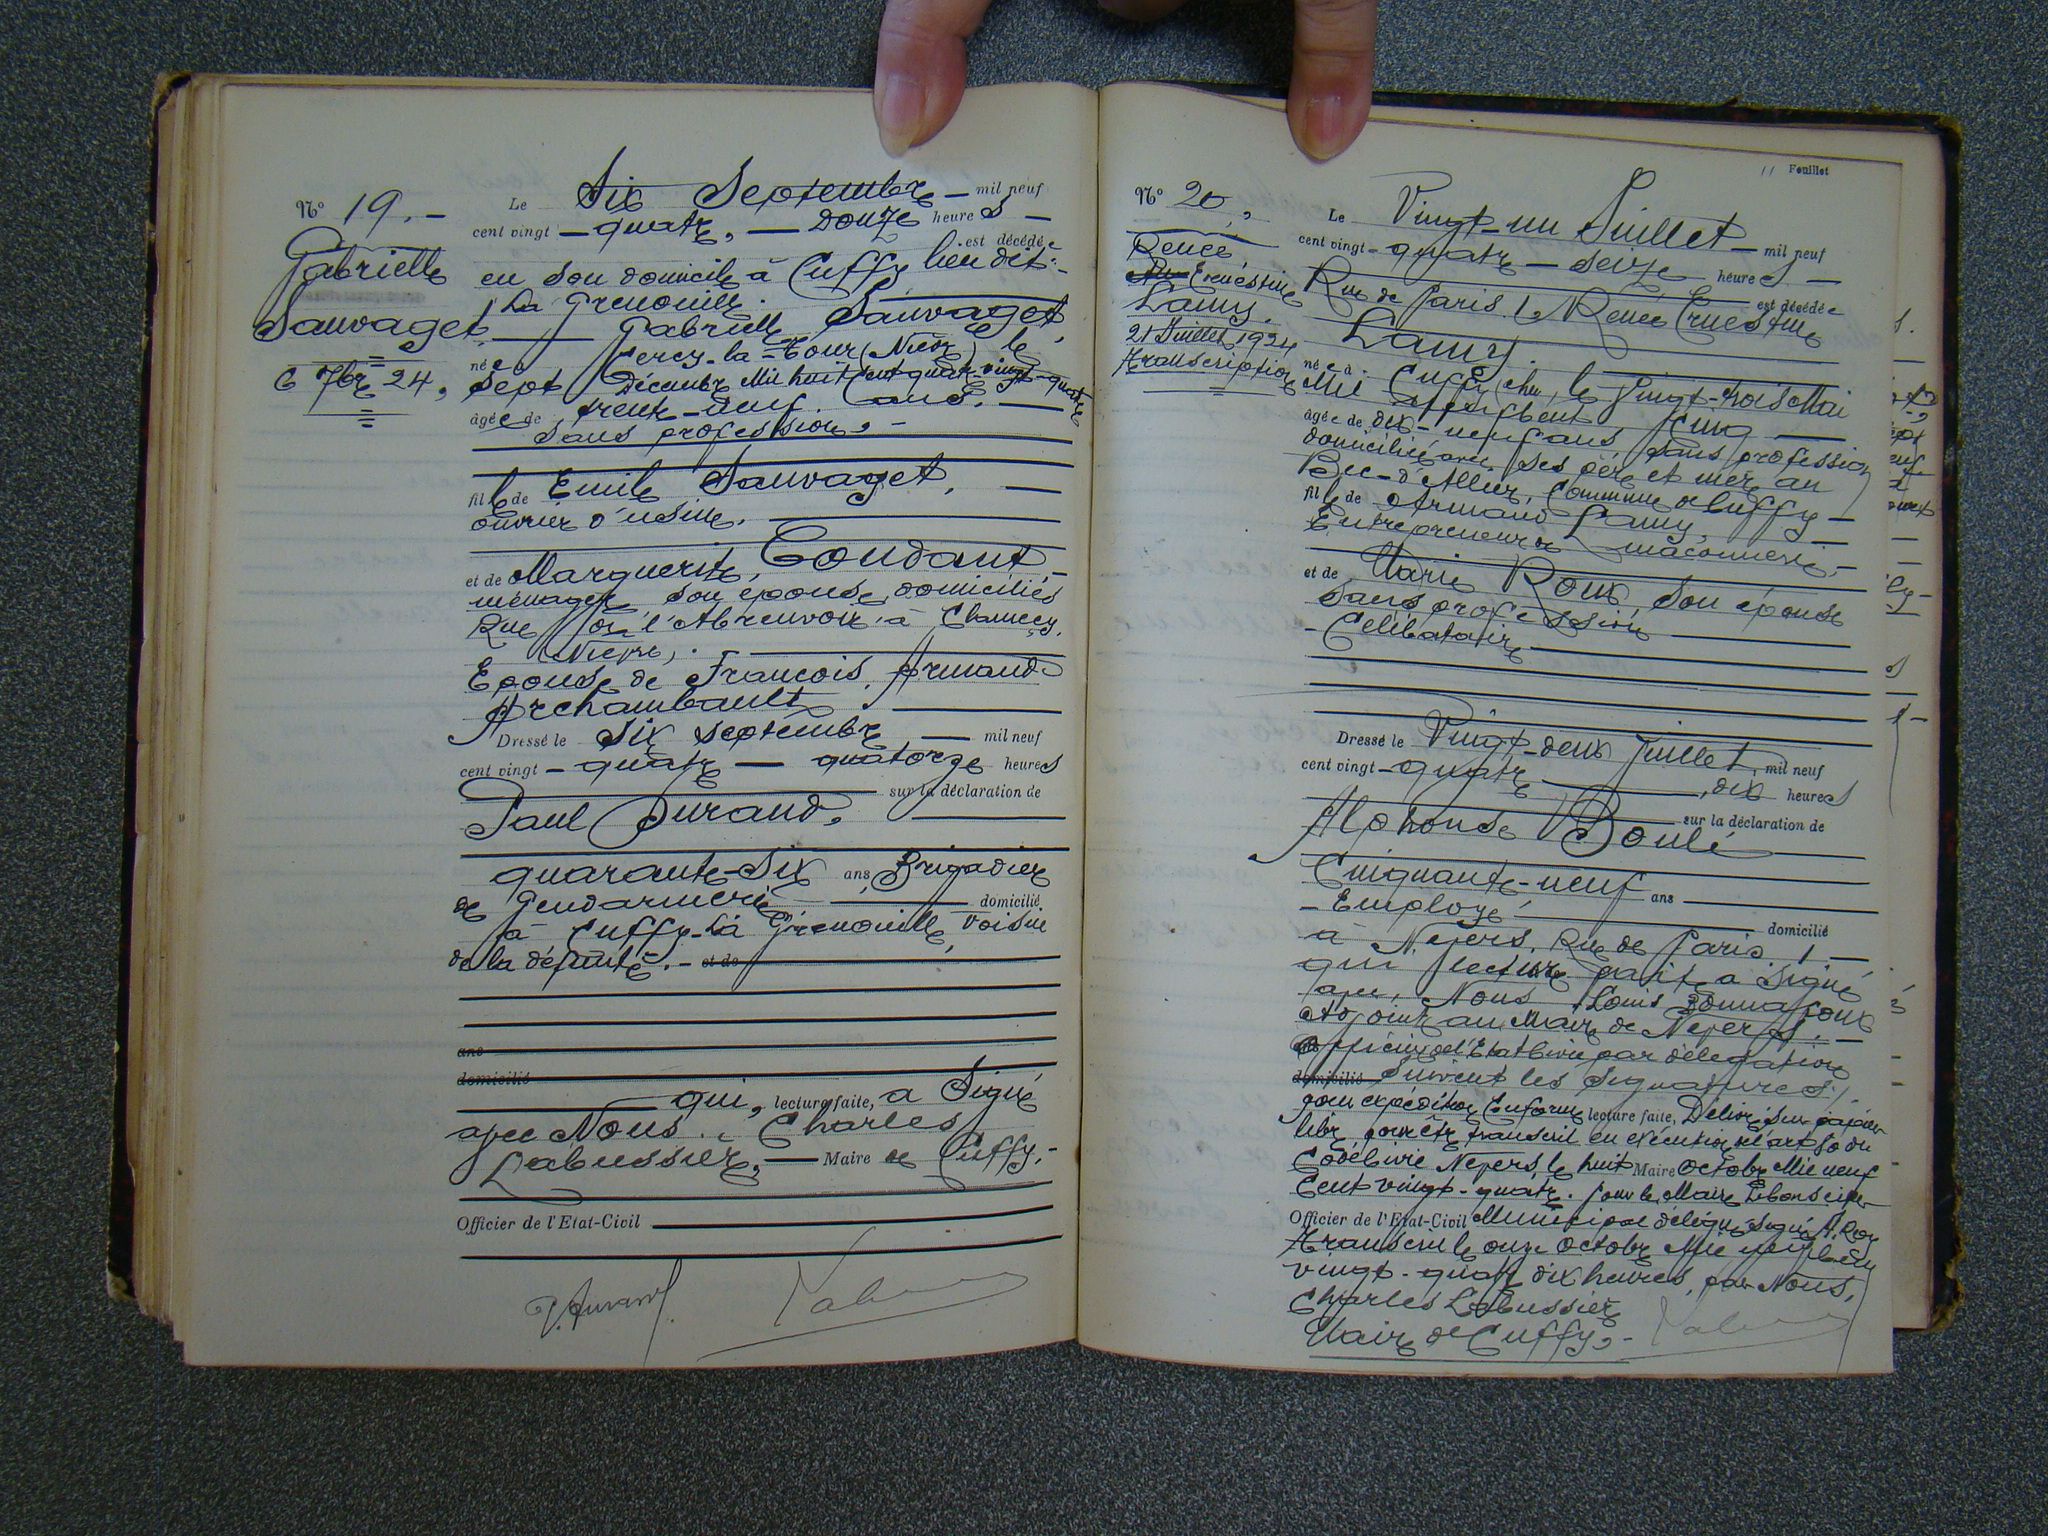 N° 19.-
Gabrielle
Sauvaget
6 7bre 24,
Le Six Septembre - mil neuf
cent vingt - quatre, - Douze heures -
est décédée
en son domicile à Cuffy lieu dit:-
La Grenouille.
Gabrielle Sauvaget,
née à Cercy-la-Tour (Nièvre) le
sept Décembre Mil huit cent quatre-vingt-quatre
âgée de trente-neuf. ans. -
Sans profession, -
fille de Emile Sauvaget, -
ouvrier d'usine.
et de Marguerite, Coudant -
ménagère son épouse, domiciliés
Rue de l'Abreuvoir à Chaneey,
Nièvre,.
Epouse de Francois, Armand
Archambault
Dressé le Six septembre - mil neuf
cent vingt - quatre - quatorze heures
sur la déclaration de
Paul Durand,
quarante-six ans, Brigadier
de Gendarmerie domicilié
à Cuffy-La Grenouille, voisin
de la défunte. - et de
ans
domicilié
qui, lecture faite, a Signé
avec Nous. Charles
Labussière, - Maire de Cuffy.-
Officier de l'Etat-Civil
P. Durand
11 Feuillet
N° 20,
Renée
Ernestine
Lamy.
21 Juillet 1924
Transcription
Le Vingt-un Juillet - mil neuf
cent vingt - quatre - seize heures -
est décédée
Rue de Paris 1, Renée Ernestine
Lamy.
née à Cuffy (cher, le Vingt-trois Mai
Mil neuf cent cinq
âgée de dix-neuf ans sans profession
domiciliée avec ses père et mère au
Bec-d'Allier, Commune de Cuffy -
fille de Armand Lamy, -
Entrepreneur de maçonnerie -
et de Marie Roux son épouse
Sans profession
- Célibataire
Dressé le Vingt-deux juillet, mil neuf
cent vingt - quatre, dix heures
sur la déclaration de
Alphonse Boulé
Cinquante-neuf ans
- Employé domicilié
à Nevers, Rue de Paris 1 -
qui lecture faite a signé
avec, Nous Louis Bonnafoux
Adjoint au Maire de Nevers. -
Officier de l'Etat Civil par délégation
domicilié Suivent les Signatures,
pour expédition Conforme lecture faite, Délivré sur papier
libre pour être transcrit en exécution de l'art 80 du
Code Civil Nevers le huit Maire Octobre Mil neuf
Cent vingt-quatre. pour le Maire Le Conseiller
Officier de l'Etat-Civil Municipal délégué Signé
Transcrit le onze Octobre Mil neuf Cent
vingt-quatre dix heures, par Nous,
Charles Labussière
Maire de Cuffy,-